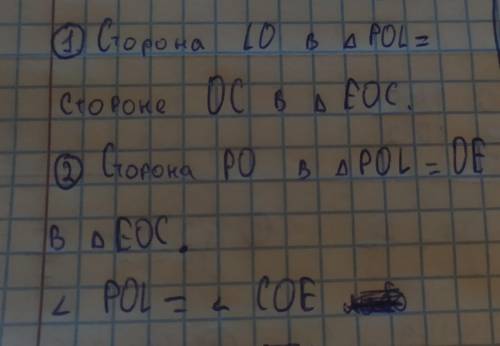 ① Сторона LO в △ POL =
стороне OC в △ EOC.
② Сторона PO в △ POL = OE
в △ EOC.
∠ POL = ∠ COE